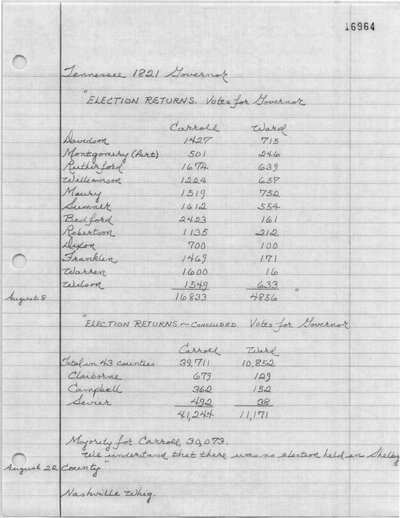 16964
Tennessee 1821 Governor
"ELECTION RETURNS. Votes for Governor
Carroll Ward
Davidson 1427 715
Montgomery (Part) 501 246
Rutherford 1674 639
Williamson 1224 657
Maury 1519 752
Sumner 1612 554
Bedford 2423 161
Robertson 1135 212
Dixon 700 100
Franklin 1469 171
Warren 1600 16
Wilson 1549 633
August 8 16833 4856 "
"ELECTION RETURNS – CONCLUDED. Votes for Governor
Carroll Ward
Total in 43 counties 39,711 10,852
Claiborne 679 129
Campbell 362 152
Sevier 492 38
41,244 11,171
Majority for Carroll, 30,073.
We understand that there was no election held in Shelby
August 22 County"
Nashville Whig.